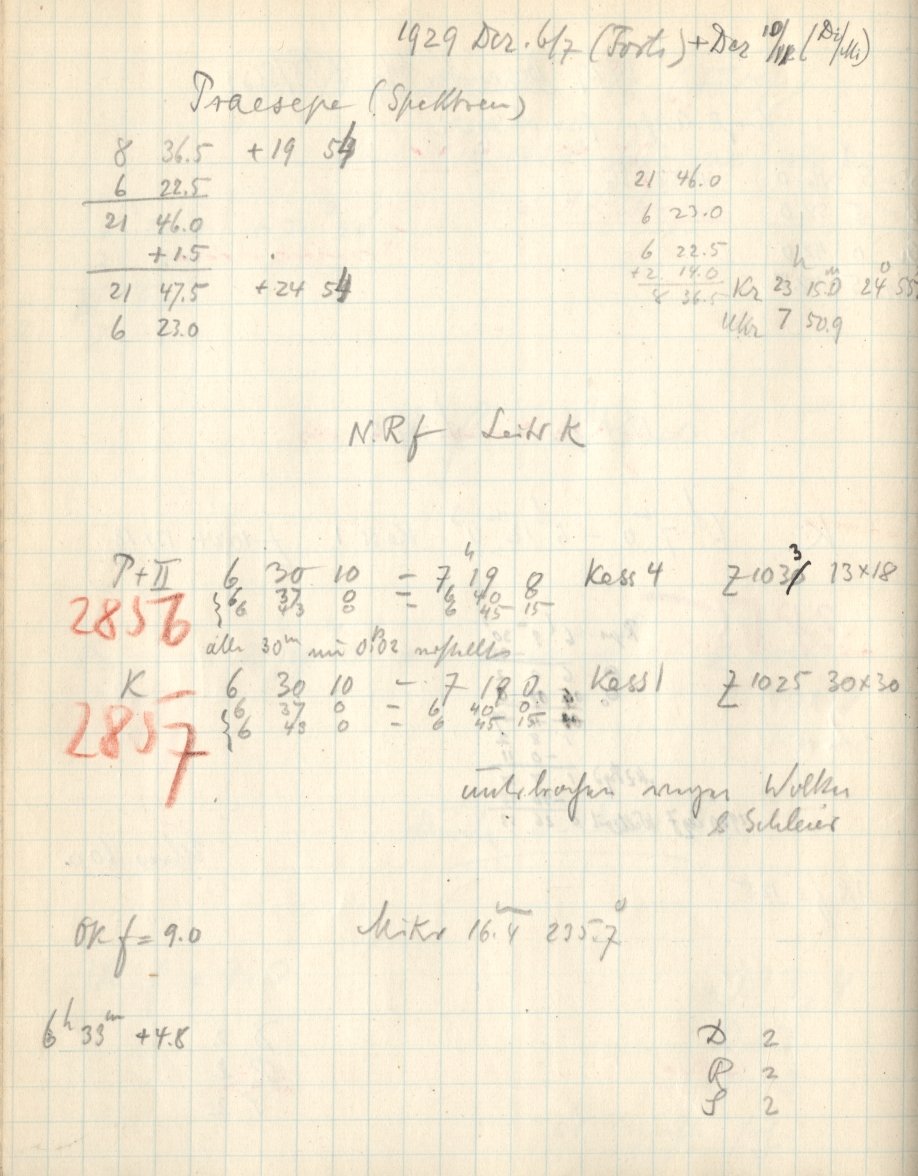 1929 Dez. 6/7 (Forts) + Dez 10/11 (Di/Mi)
Praesepe (Spektren)
8 36.5 +19 54
6 22.5
21 46.0
+1.5
21 47.5 +24 54
6 23.0
21 46.0
6 23.0
6 22.5
+2 14.0
8 36.5
Kr 23 h 15.0 m 24° 55
UKr 7 50.9
N.Rf Leitr K
P+II 6 30 10 – 7 h 19 8 Kass 4 Z 1033 13×18
2856 { 6 37 0 – 6 40 0
6 43 0 – 6 45 15
alle 30 m um 0.02 verstellt
K 6 30 10 – 7 19 0 Kass 1 Z 1025 30×30
2857 { 6 37 0 – 6 40 0
6 43 0 – 6 45 15
unterbrochen wegen Wolken
Schleier
Ok f = 9.0 Mikr 16.4 235.7°
6 h 33 m +4.8
D 2
R 2
S 2